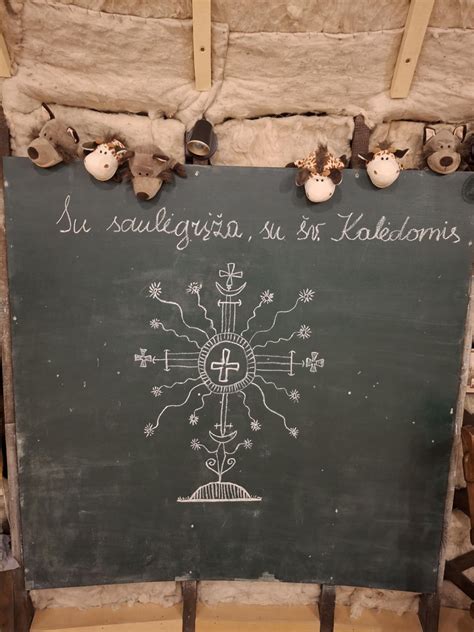 Su saulėgrįža, su šv. Kalėdomis.